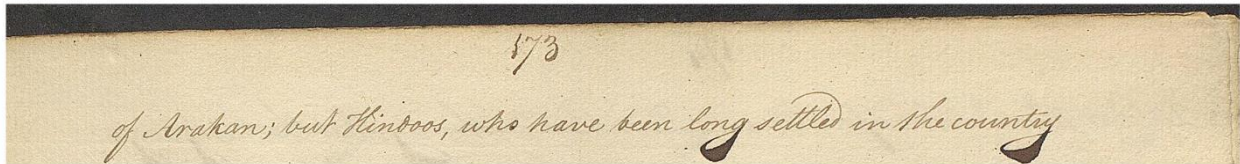 173
of Arakan; but Hindoos, who have been long settled in the country